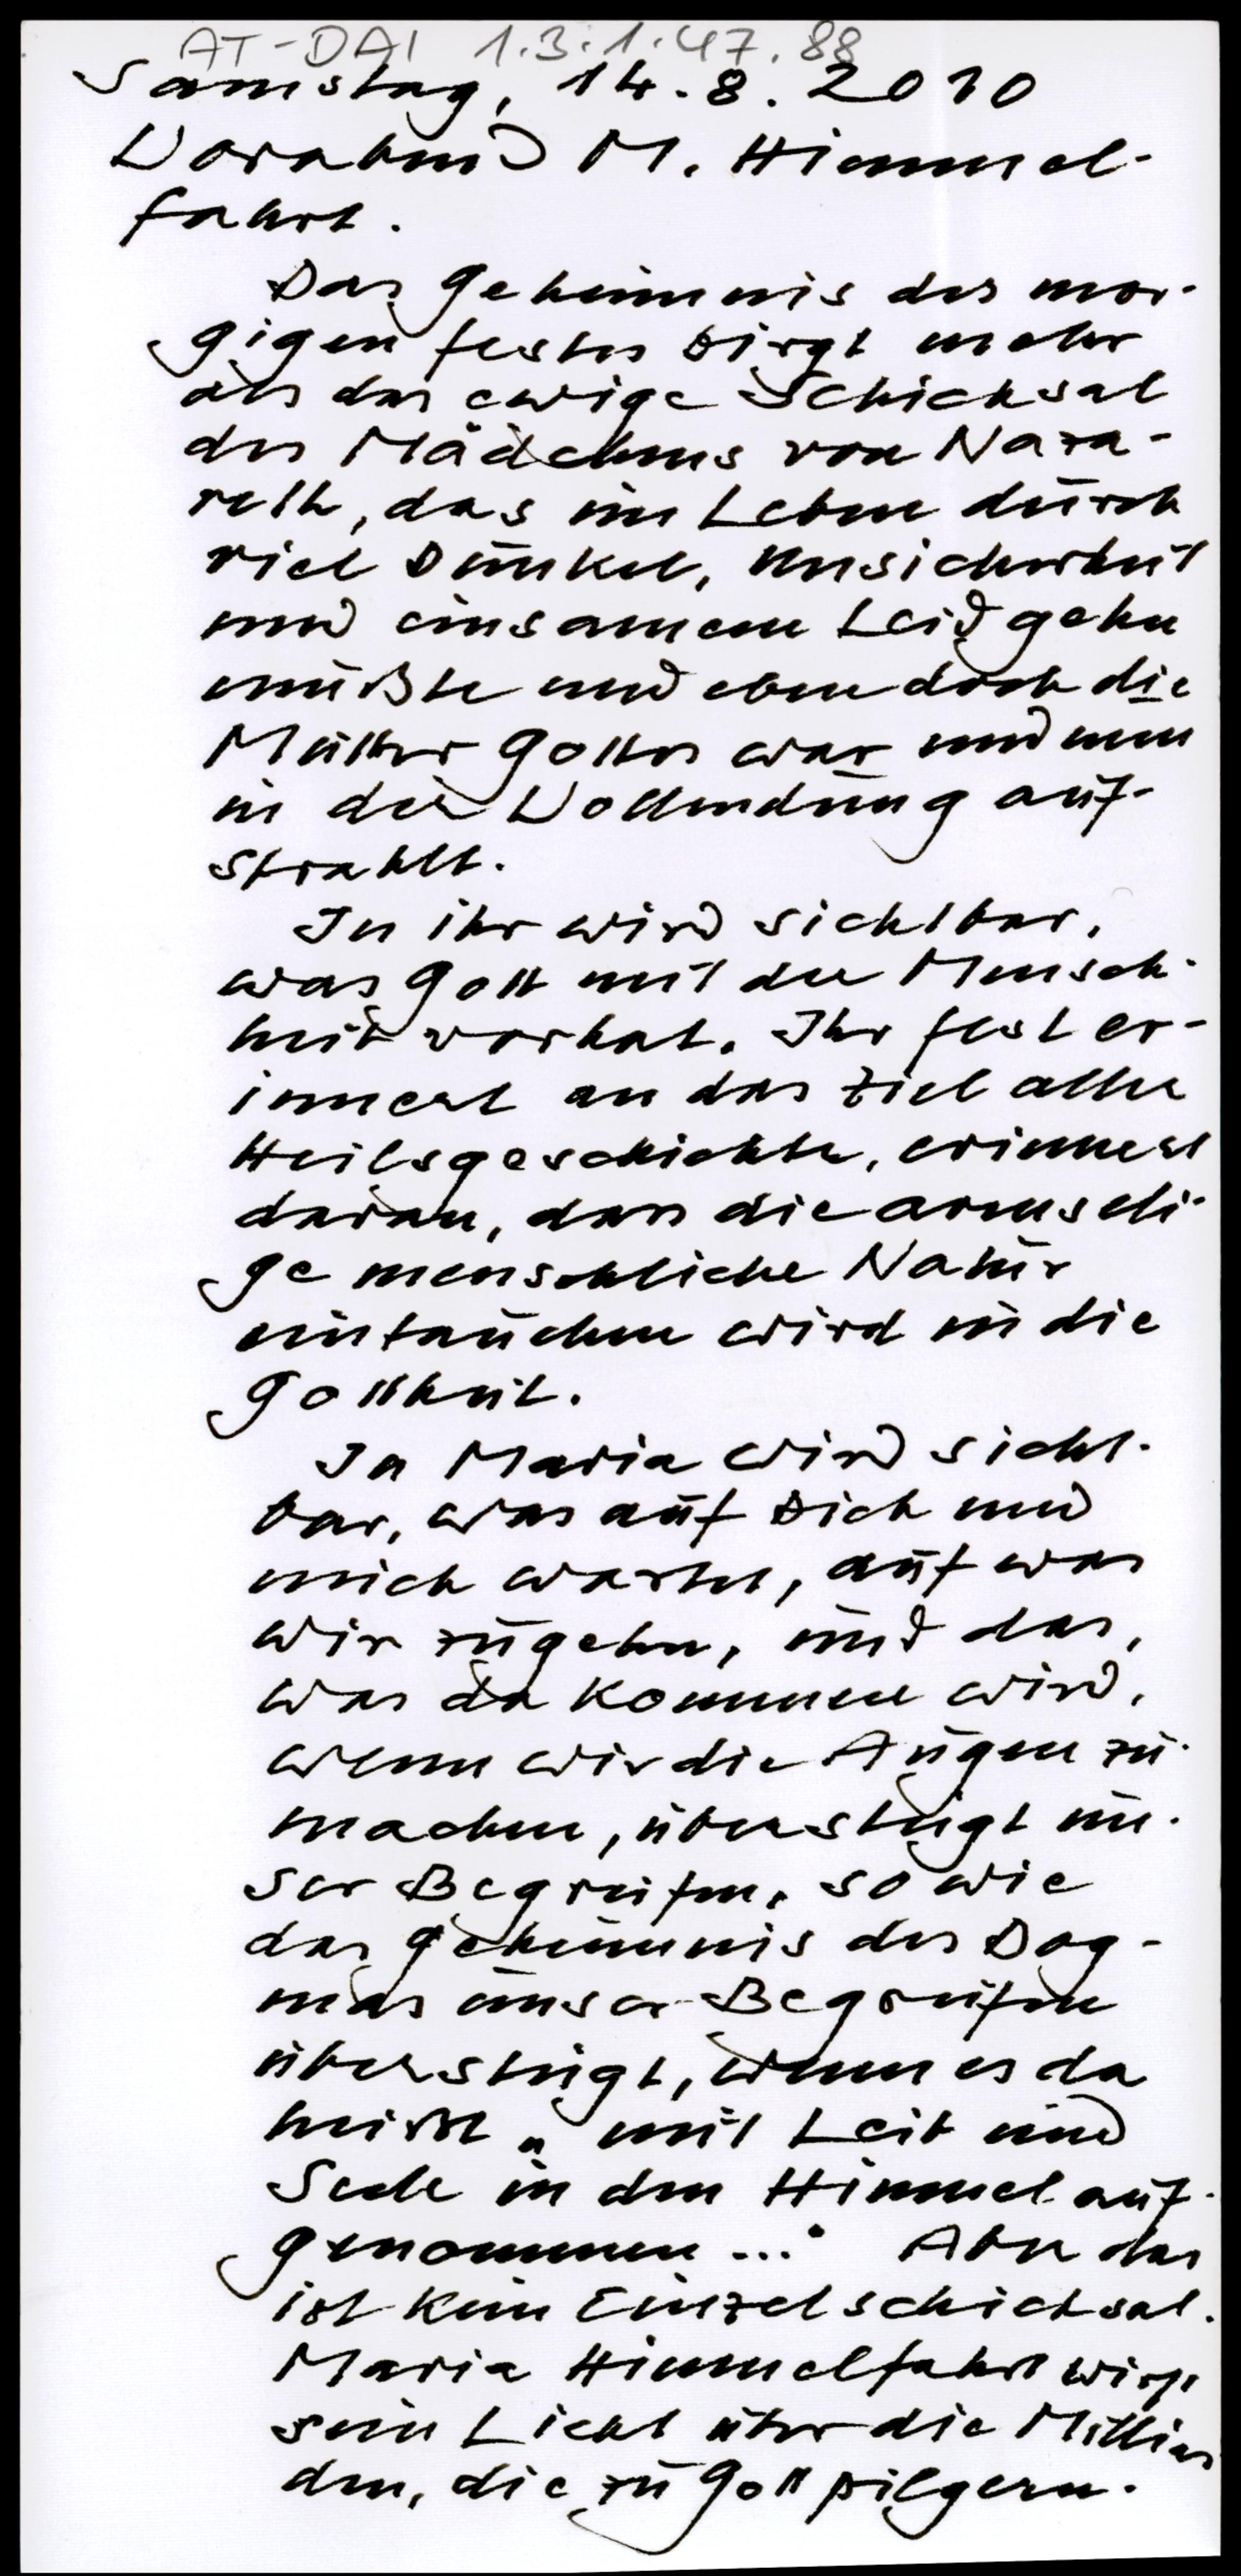 AT-DAI 1.3.1.47.88
Samstag, 14.8.2010
Vorabend M. Himmel-
fahrt.
Das Geheimnis des mor-
gigen Festes birgt mehr
als das ewige Schicksal
des Mädchens von Naza-
reth, das im Leben durch
viel Dunkel, Unsicherheit
und einsamem Leid gehn
mußte und eben doch die
Mutter Gottes war und nun
in der Vollendung auf-
strahlt.
In ihr wird sichtbar,
was Gott mit der Mensch-
heit vorhat. Ihr Fest er-
innert an das Ziel aller
Heilsgeschichte, erinnert
daran, dass die armseli-
ge menschliche Natur
eintauchen wird in die
Gottheit.
In Maria wird sicht-
bar, was auf Dich und
mich wartet, auf was
wir zugehn, und das,
was da kommen wird,
wenn wir die Augen zu-
machen, übersteigt un-
ser Begreifen, so wie
das Geheimnis des Dog-
mas unser Begreifen
übersteigt, wenn es da
heißt „mit Leib und
Seele in den Himmel auf-
genommen ..." Aber das
ist kein Einzelschicksal.
Maria Himmelfahrt wirft
sein Licht über die Milliar
den, die zu Gott pilgern.